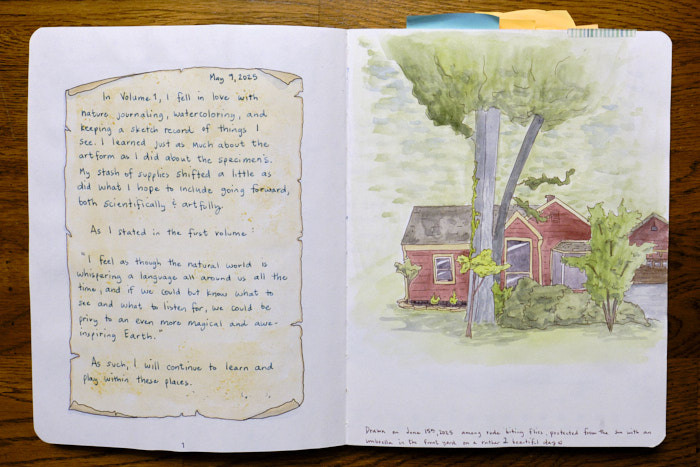 May 9, 2025
In Volume 1, I fell in love with
nature journaling, watercoloring, and
keeping a sketch record of things I
see. I learned just as much about the
artform as I did about the specimens.
My stash of supplies shifted a little as
did what I hope to include going forward,
both scientifically & artfully.
As I stated in the first volume:
"I feel as though the natural world is
whispering a language all around us all the
time, and if we could but know what to
see and what to listen for, we could be
privy to an even more magical and awe-
inspiring Earth."
As such, I will continue to learn and
play within these places.
1
Drawn on June 15th, 2025 among rude biting flies, protected from the sun with an
umbrella in the front yard on a rather beautiful day